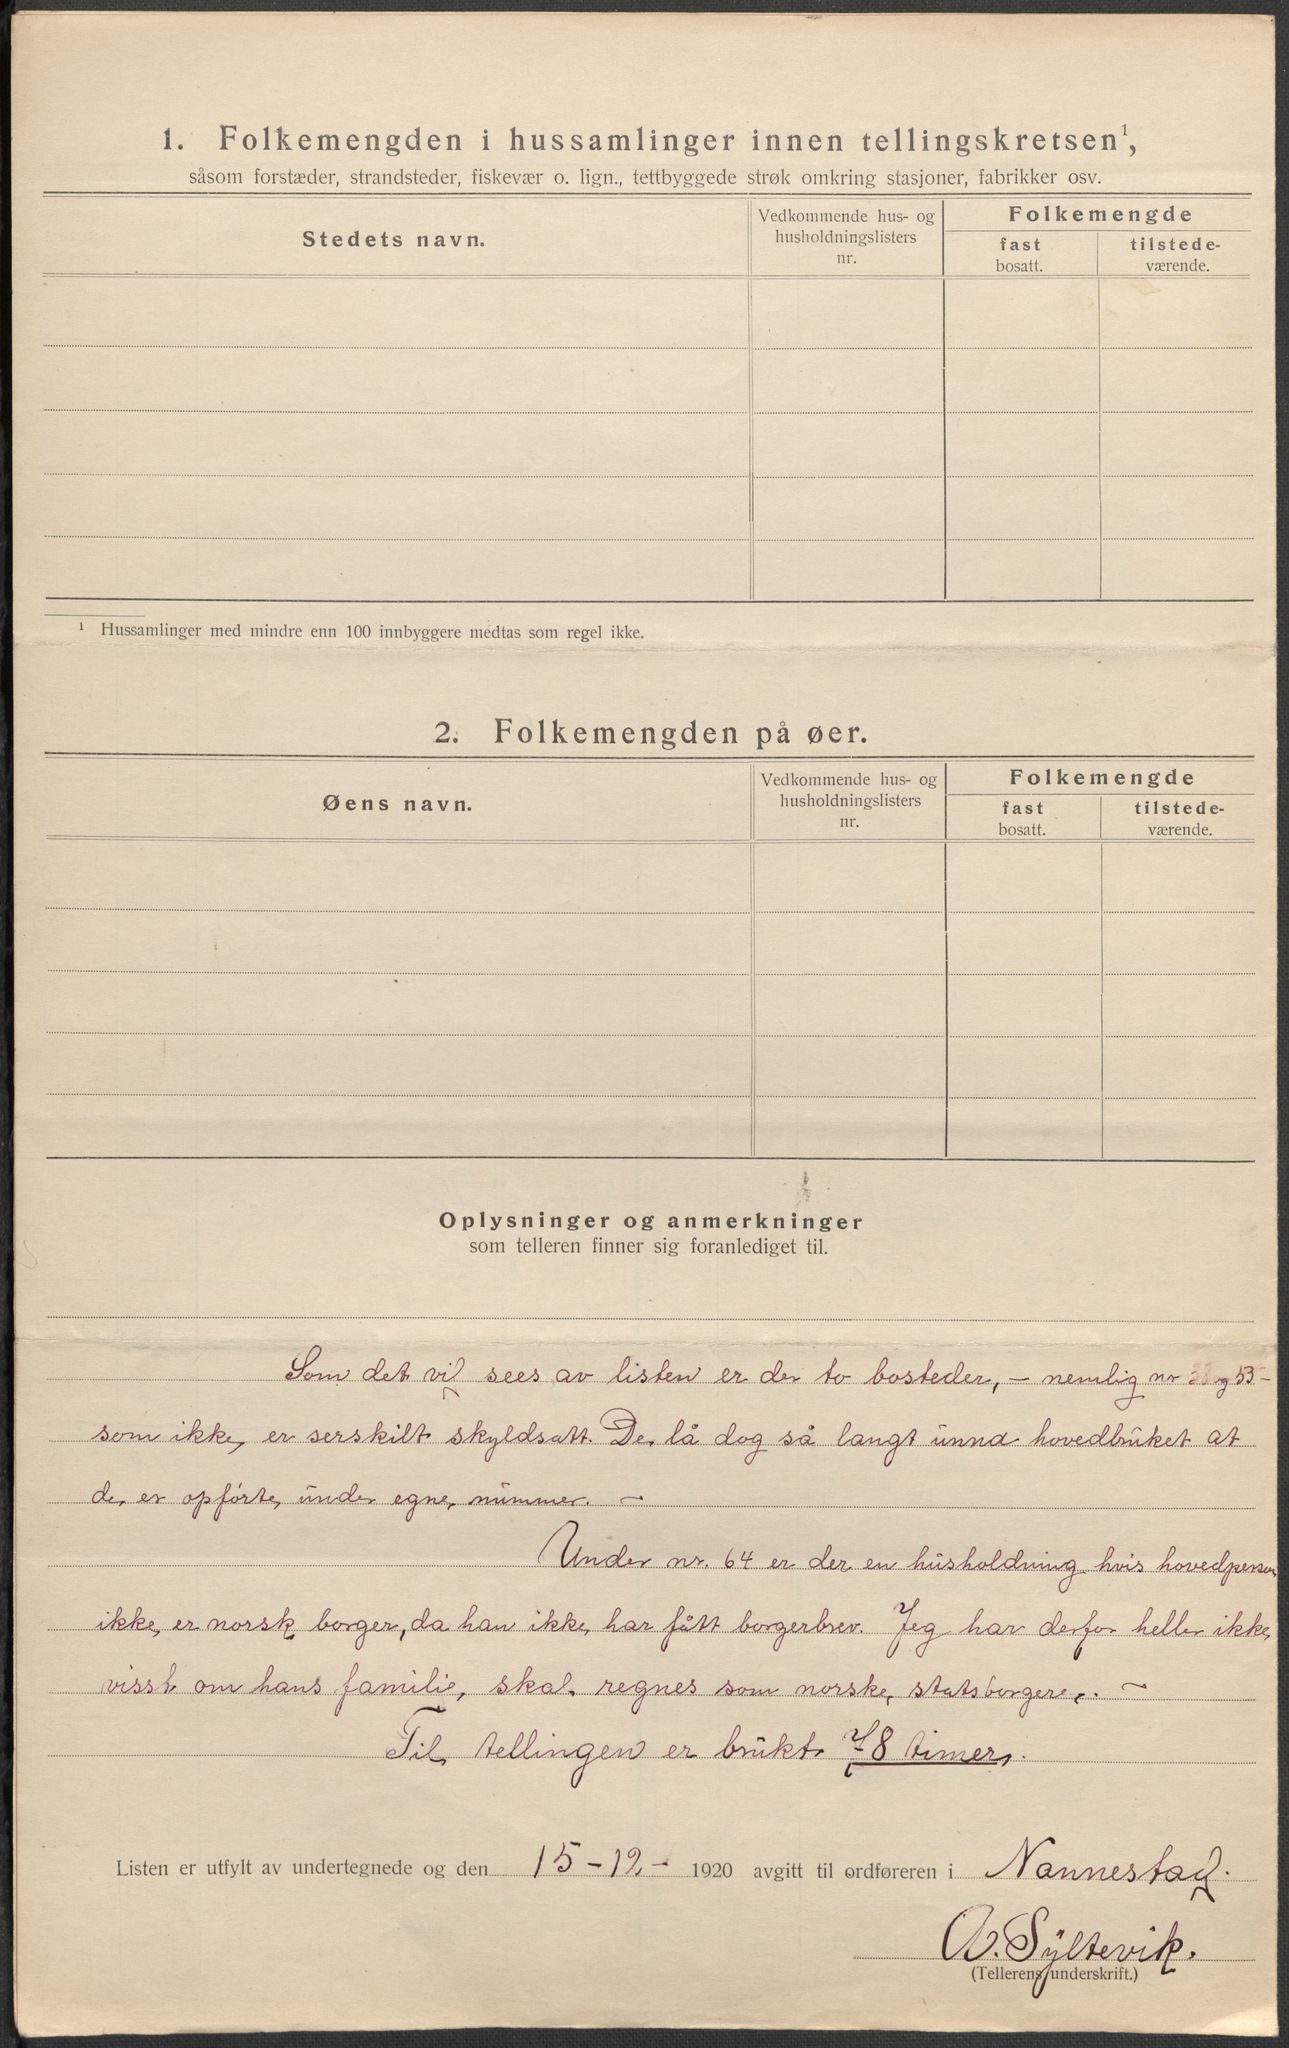 1. Folkemengden i hussamlinger innen tellingskretsen¹,
såsom forstæder, strandsteder, fiskevær o. lign., tettbyggede strøk omkring stasjoner, fabrikker osv.
Stedets navn.
Vedkommende hus- og
husholdningslisters
nr.
Folkemengde
fast
bosatt.
tilstede-
værende.
¹ Hussamlinger med mindre enn 100 innbyggere medtas som regel ikke.
2. Folkemengden på øer.
Øens navn.
Vedkommende hus- og
husholdningslisters
nr.
Folkemengde
fast
bosatt.
tilstede-
værende.
Oplysninger og anmerkninger
som telleren finner sig foranlediget til.
Som det vil sees av listen er der to bosteder, – nemlig nr og 53 –
som ikke er serskilt skyldsatt. De lå dog så langt unna hovedbruket at
de er opførte under egne nummer. –
Under nr. 64 er der en husholdning hvis hovedperson
ikke er norsk borger, da han ikke har fått borgerbrev. Jeg har derfor heller ikke
visst om hans familie skal regnes som norske statsborgere. –
Til tellingen er brukt 78 timer.
Listen er utfylt av undertegnede og den 15-12- 1920 avgitt til ordføreren i Nannestad.
A. Syltevik.
(Tellerens underskrift.)